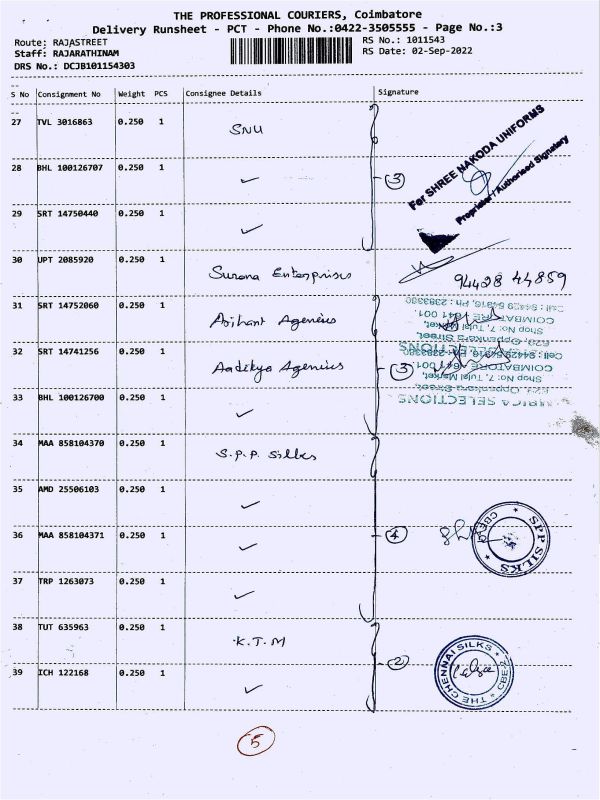 THE PROFESSIONAL COURIERS, Coimbatore
Delivery Runsheet - PCT - Phone No.:0422-3505555 - Page No.:3
Route: RAJASTREET
RS No.: 1011543
Staff: RAJARATHINAM
RS Date: 02-Sep-2022
DRS No.: DCJB101154303
S No Consignment No Weight PCS Consignee Details Signature
27 TVL 3016863 0.250 1 SNU
28 BHL 100126707 0.250 1 ✓ 3
For SHREE NAKODA UNIFORMS
Proprietor / Authorised Signatory
29 SRT 14750440 0.250 1 ✓
30 UPT 2085920 0.250 1 Surana Enterprises
94428 44859
31 SRT 14752060 0.250 1 Arihant Agencies
32 SRT 14741256 0.250 1 Aaditya Agencies 3
COIMBATORE 641 001.
Shop No: 7, Tulsi Market,
33 BHL 100126700 0.250 1 ✓
34 MAA 858104370 0.250 1 S.P.P. Silks
35 AMD 25506103 0.250 1 ✓
36 MAA 858104371 0.250 1 ✓ 4
SPP SILKS
37 TRP 1263073 0.250 1 ✓
38 TUT 635963 0.250 1 K.T.M
2
THE CHENNAI SILKS
39 ICH 122168 0.250 1 ✓
5